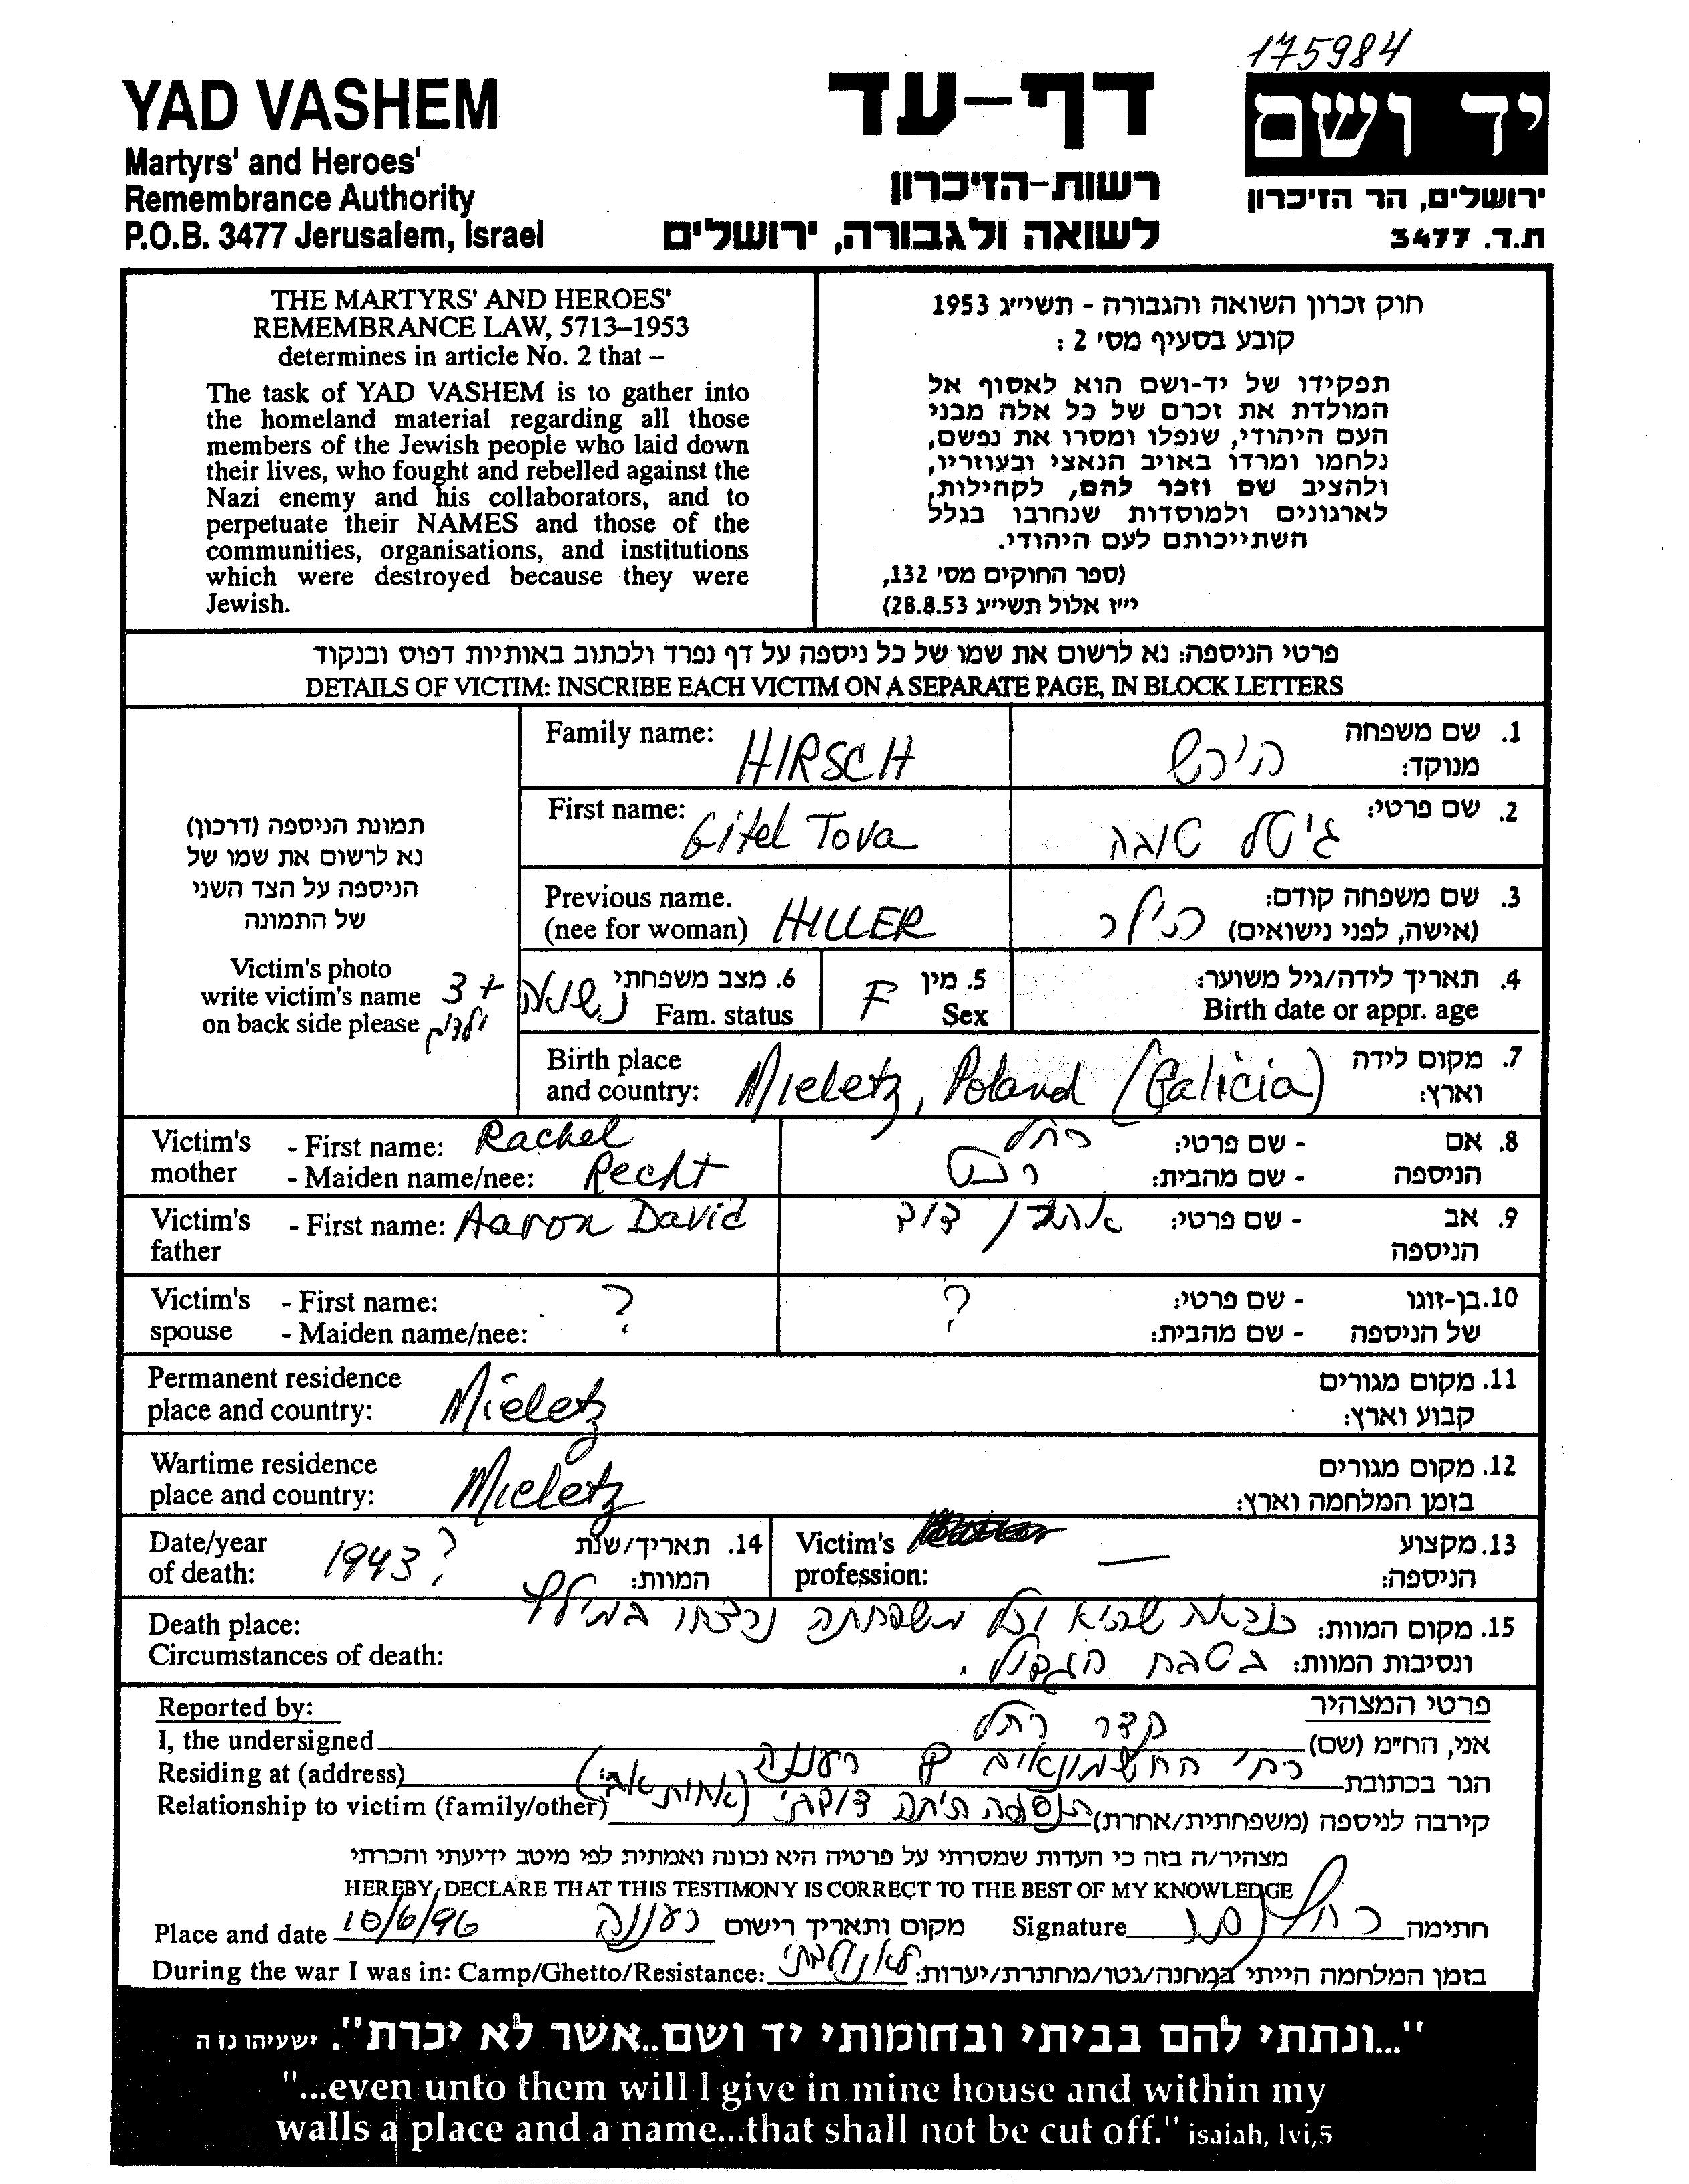 175984
YAD VASHEM
Martyrs' and Heroes'
Remembrance Authority
P.O.B. 3477 Jerusalem, Israel
דף-עד
רשות-הזיכרון
לשואה ולגבורה, ירושלים
יד ושם
ירושלים, הר הזיכרון
ת.ד. 3477
THE MARTYRS' AND HEROES'
REMEMBRANCE LAW, 5713–1953
determines in article No. 2 that –
The task of YAD VASHEM is to gather into
the homeland material regarding all those
members of the Jewish people who laid down
their lives, who fought and rebelled against the
Nazi enemy and his collaborators, and to
perpetuate their NAMES and those of the
communities, organisations, and institutions
which were destroyed because they were
Jewish.
חוק זכרון השואה והגבורה - תשי״ג 1953
קובע בסעיף מס׳ 2 :
תפקידו של יד-ושם הוא לאסוף אל
המולדת את זכרם של כל אלה מבני
העם היהודי, שנפלו ומסרו את נפשם,
נלחמו ומרדו באויב הנאצי ובעוזריו,
ולהציב שם וזכר להם, לקהילות,
לארגונים ולמוסדות שנחרבו בגלל
השתייכותם לעם היהודי.
(ספר החוקים מס׳ 132,
י״ז אלול תשי״ג 28.8.53)
פרטי הניספה: נא לרשום את שמו של כל ניספה על דף נפרד ולכתוב באותיות דפוס ובנקוד
DETAILS OF VICTIM: INSCRIBE EACH VICTIM ON A SEPARATE PAGE, IN BLOCK LETTERS
תמונת הניספה (דרכון)
נא לרשום את שמו של
הניספה על הצד השני
של התמונה
Victim's photo
write victim's name
on back side please
Family name: HIRSCH הירש 1. שם משפחה מנוקד:
First name: Gitel Tova גיטל טובה 2. שם פרטי:
Previous name. (nee for woman) HILLER הילר 3. שם משפחה קודם: (אישה, לפני נישואים)
3 + ילדים נשואה 6. מצב משפחתי Fam. status F 5. מין Sex 4. תאריך לידה/גיל משוער: Birth date or appr. age
Birth place and country: Mieletz, Poland (Galicia) 7. מקום לידה וארץ:
Victim's mother - First name: Rachel רחל 8. אם הניספה - שם פרטי:
- Maiden name/nee: Recht רכט - שם מהבית:
Victim's father - First name: Aaron David אהרן דוד 9. אב הניספה - שם פרטי:
Victim's spouse - First name: ? ? 10. בן-זוגו של הניספה - שם פרטי:
- Maiden name/nee: - שם מהבית:
Permanent residence place and country: Mieletz 11. מקום מגורים קבוע וארץ:
Wartime residence place and country: Mieletz 12. מקום מגורים בזמן המלחמה וארץ:
Date/year of death: 1943 ? 14. תאריך/שנת המוות: Victim's profession: — 13. מקצוע הניספה:
Death place: 15. מקום המוות: כנראה שהיא וכל משפחתה נרצחו במילץ
Circumstances of death: ונסיבות המוות: בטבח הגדול.
Reported by: פרטי המצהיר
I, the undersigned קדר רחל אני, הח״מ (שם)
Residing at (address) רח׳ החשמונאים רעננה הגר בכתובת
Relationship to victim (family/other) הנספה היתה דודתי (אחות אבי) קירבה לניספה (משפחתית/אחרת)
מצהיר/ה בזה כי העדות שמסרתי על פרטיה היא נכונה ואמתית לפי מיטב ידיעתי והכרתי
HEREBY DECLARE THAT THIS TESTIMONY IS CORRECT TO THE BEST OF MY KNOWLEDGE
Place and date 10/6/96 רעננה מקום ותאריך רישום Signature רחל קדר חתימה
During the war I was in: Camp/Ghetto/Resistance: בזמן המלחמה הייתי במחנה/גטו/מחתרת/יערות:
"...ונתתי להם בביתי ובחומותי יד ושם..אשר לא יכרת". ישעיהו נו ה
"...even unto them will I give in mine house and within my
walls a place and a name...that shall not be cut off." isaiah, lvi,5